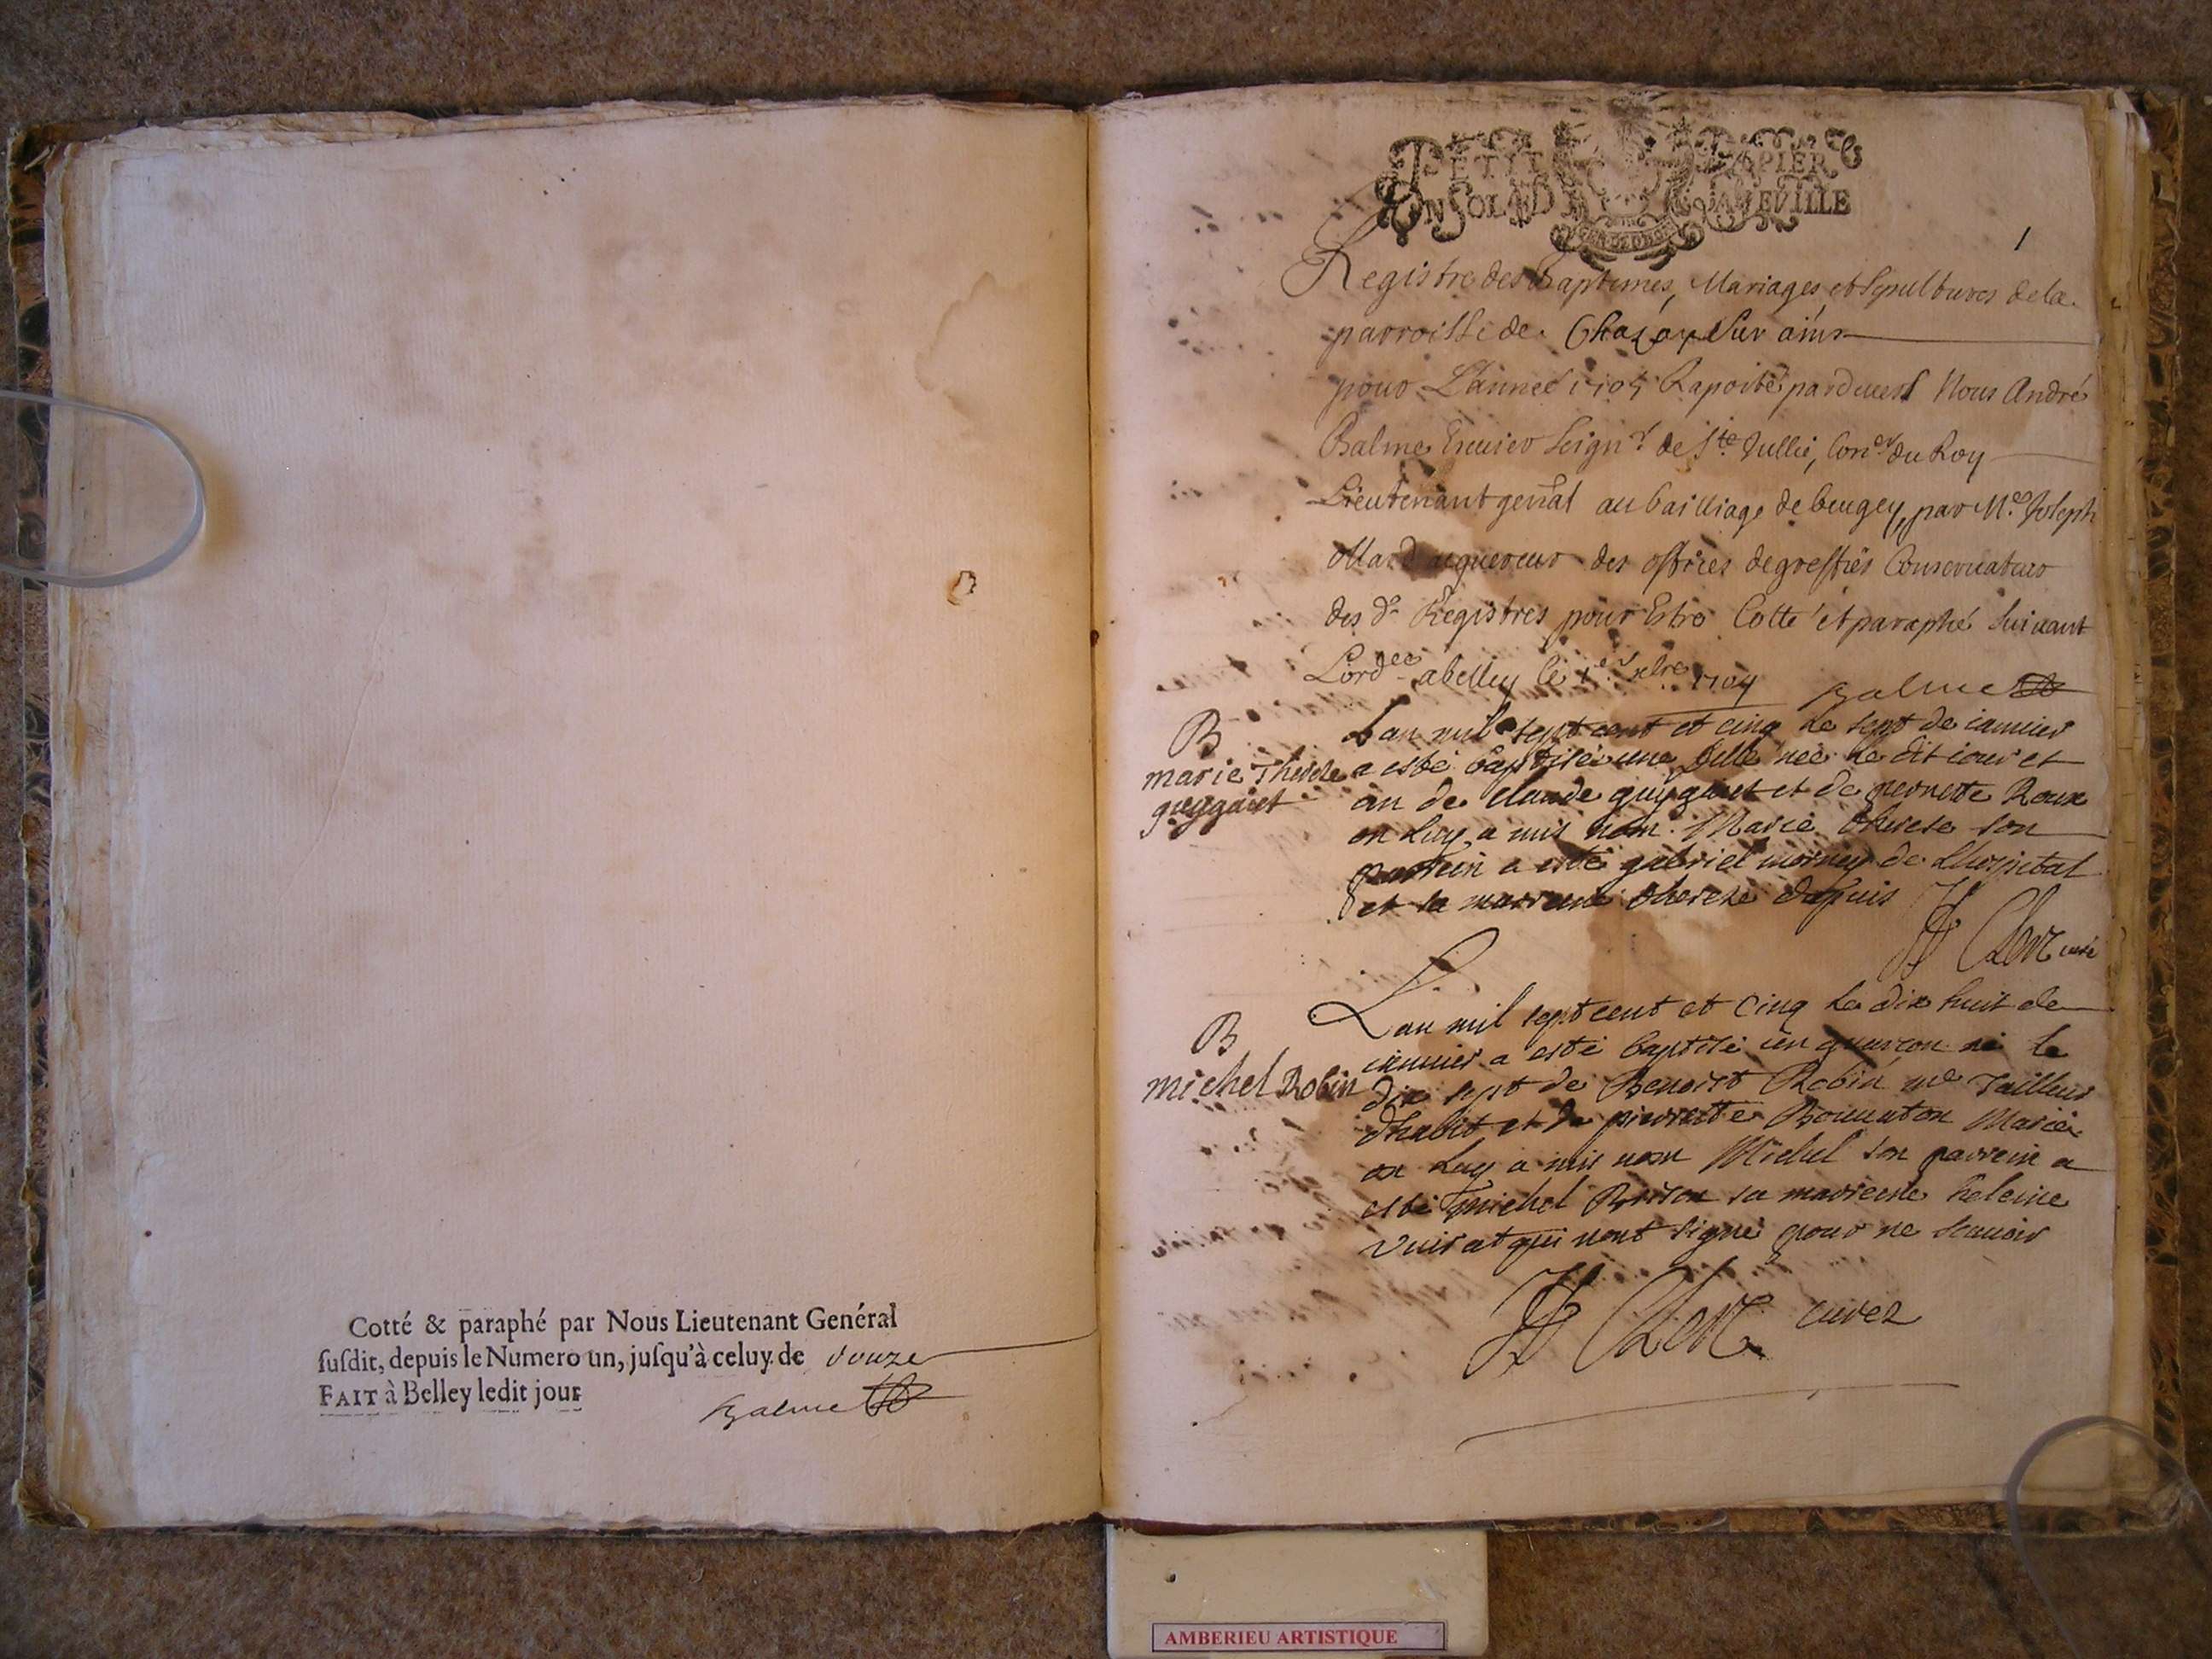 Cotté & paraphé par Nous Lieutenant Genéral
susdit, depuis le Numero un, jusqu'à celuy de douze
FAIT à Belley ledit jour
Balme
PETIT PAPIER
UN SOL
1
Registre des Baptemes, Mariages et Sepultures de la
parroisse de Chazay sur ains
pour L'année 1705 Raporté parduent Nous André
Balme Escuier Seignr de Ste Jullie, Coner du Roy
Lieutenant genal au bailliage de beugey, par Me Joseph
ollard aquereur des offices de greffies Conservateur
des ds Registres pour Estre Cotté et paraphé suivant
Lordce a belley le 1er xbre 1704 Balme
B
marie Therese
guygaret
Lan mil sept cent et cinq le sept de ianuier
a esté baptisée une fille née le dit iour et
an de claude guygaret et de pernette Roux
on Luy a mis nom Marie therese son
parrein a esté gabriel mornay de Lhospital
et sa marreine therese dupuis
Clerc curé
B
michel Robin
Lan mil sept cent et cinq le dix huit de
ianuier a esté baptisé un guarcon né le
dix sept de Benoist Robin me Tailleur
dhabit et de pierrette Bounaton Mariéz
on Luy a mis nom Michel son parrein a
esté michel Brison sa marreine heleine
qui nont signé pour ne scauoir
Clerc curez
AMBERIEU ARTISTIQUE